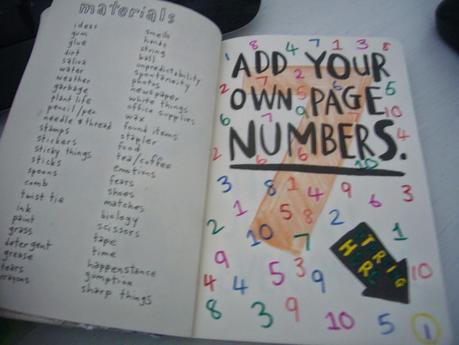 materials
ideas
gum
glue
dirt
saliva
water
weather
garbage
plant life
pencil/pen
needle & thread
stamps
stickers
sticky things
sticks
spoons
comb
twist tie
ink
paint
grass
detergent
grease
tears
crayons
smells
hands
string
ball
unpredictability
spontaneity
photos
newspaper
white things
office supplies
wax
found items
stapler
food
tea/coffee
emotions
fears
shoes
matches
biology
scissors
tape
time
happenstance
gumption
sharp things
1 8 4 7 1 3 8
ADD YOUR
2 7 2 5 6 5
OWN PAGE
6 7 9 10
NUMBERS.
4
2 6 6 10
3 8 1 4 9 6 3
1 5 8 2
2 10 7 1
9 5 3 9 10
4 4
8 3 9 10 5 1